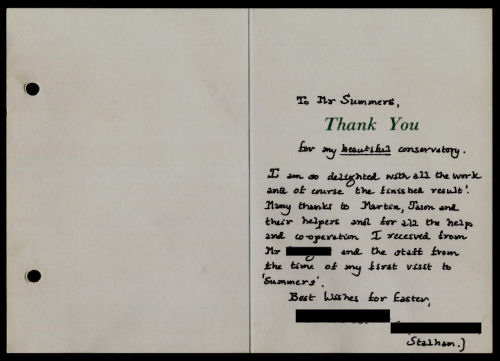 To Mr Summers,
Thank You
for my beautiful conservatory.
I am so delighted with all the work
and of course 'the finished result'.
Many thanks to Martin, Jason and
their helpers and for all the help
and co-operation I received from
Mr and the staff from
the time of my first visit to
'Summers'.
Best Wishes for Easter,
Stalham.)